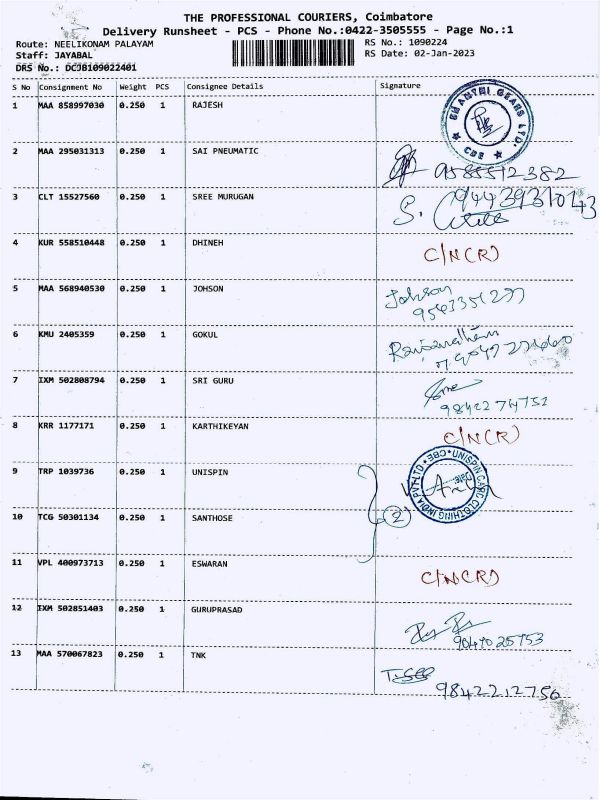 THE PROFESSIONAL COURIERS, Coimbatore
Delivery Runsheet - PCS - Phone No.:0422-3505555 - Page No.:1
Route: NEELIKONAM PALAYAM
RS No.: 1090224
Staff: JAYABAL
RS Date: 02-Jan-2023
DRS No.: DCJB109022401
S No Consignment No Weight PCS Consignee Details Signature
1 MAA 858997030 0.250 1 RAJESH
SHANTHI GEARS LTD. CBE
2 MAA 295031313 0.250 1 SAI PNEUMATIC
9585512382
3 CLT 15527560 0.250 1 SREE MURUGAN
S.
4 KUR 558510448 0.250 1 DHINEH C/N(R)
5 MAA 568940530 0.250 1 JOHSON Johson
6 KMU 2405359 0.250 1 GOKUL
7 IXM 502808794 0.250 1 SRI GURU
9842274752
8 KRR 1177171 0.250 1 KARTHIKEYAN C/N(R)
9 TRP 1039736 0.250 1 UNISPIN
UNISPIN CARD CLOTHING INDIA PVT LTD CBE
10 TCG 50301134 0.250 1 SANTHOSE 2
11 VPL 400973713 0.250 1 ESWARAN C/N(R)
12 IXM 502851403 0.250 1 GURUPRASAD
9047025753
13 MAA 570067823 0.250 1 TNK
9842212756